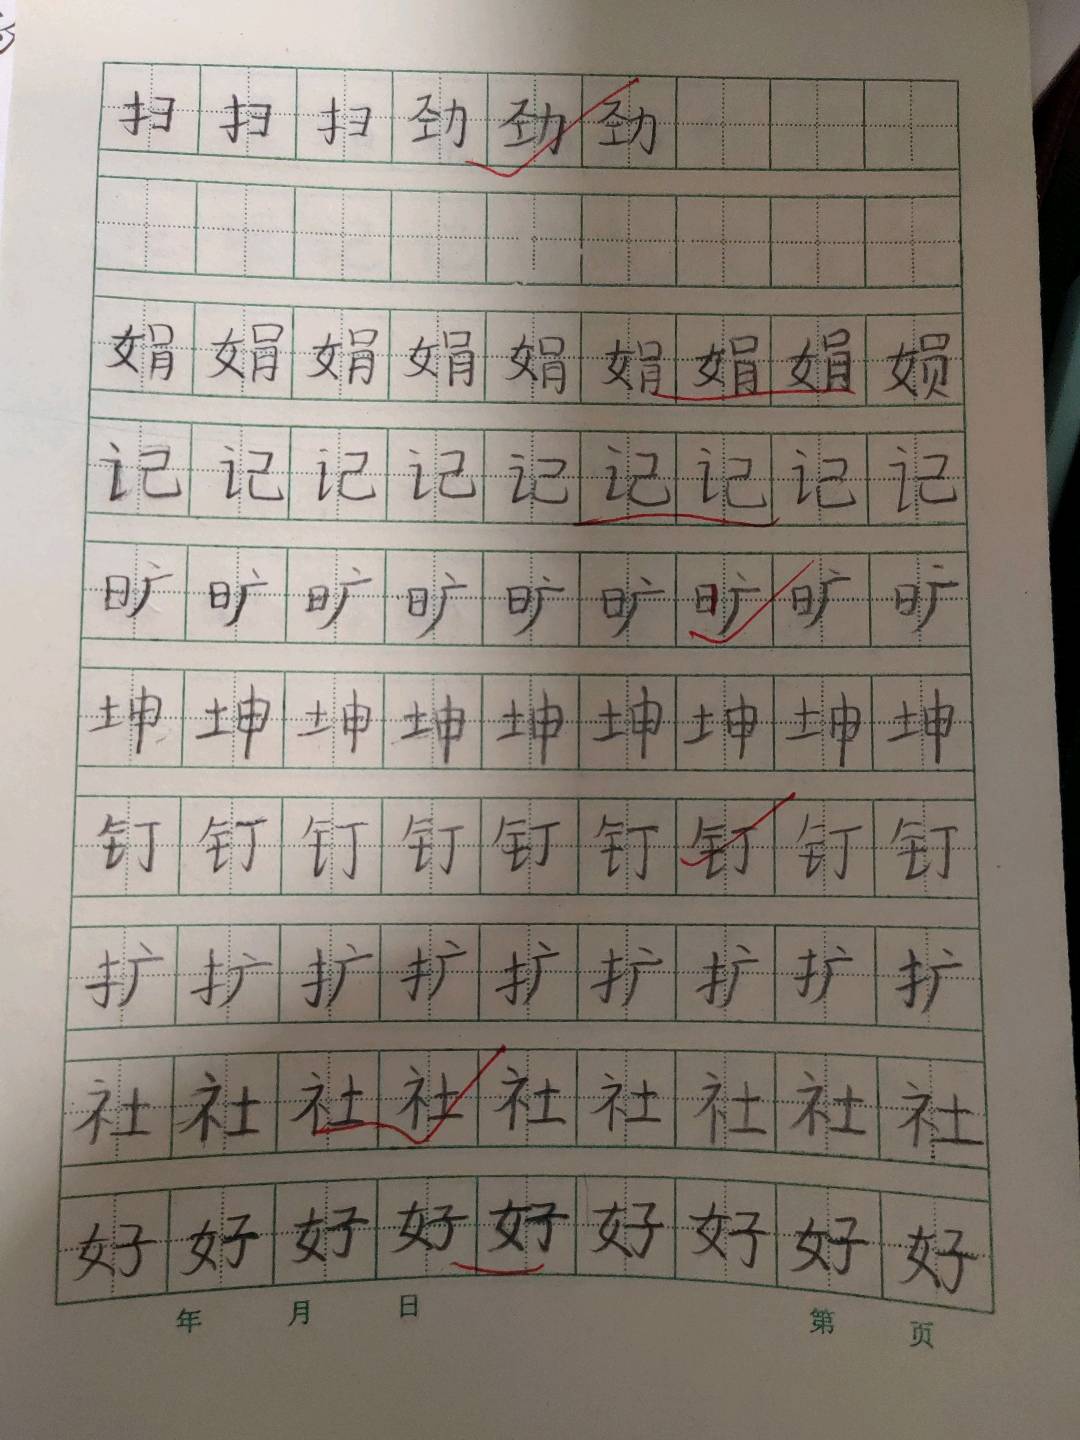 扫扫扫劲劲劲
娟娟娟娟娟娟娟娟娟
记记记记记记记记记
旷旷旷旷旷旷旷旷旷
坤坤坤坤坤坤坤坤坤
钉钉钉钉钉钉钉钉钉
扩扩扩扩扩扩扩扩扩
社社社社社社社社社
好好好好好好好好好
年 月 日 第 页